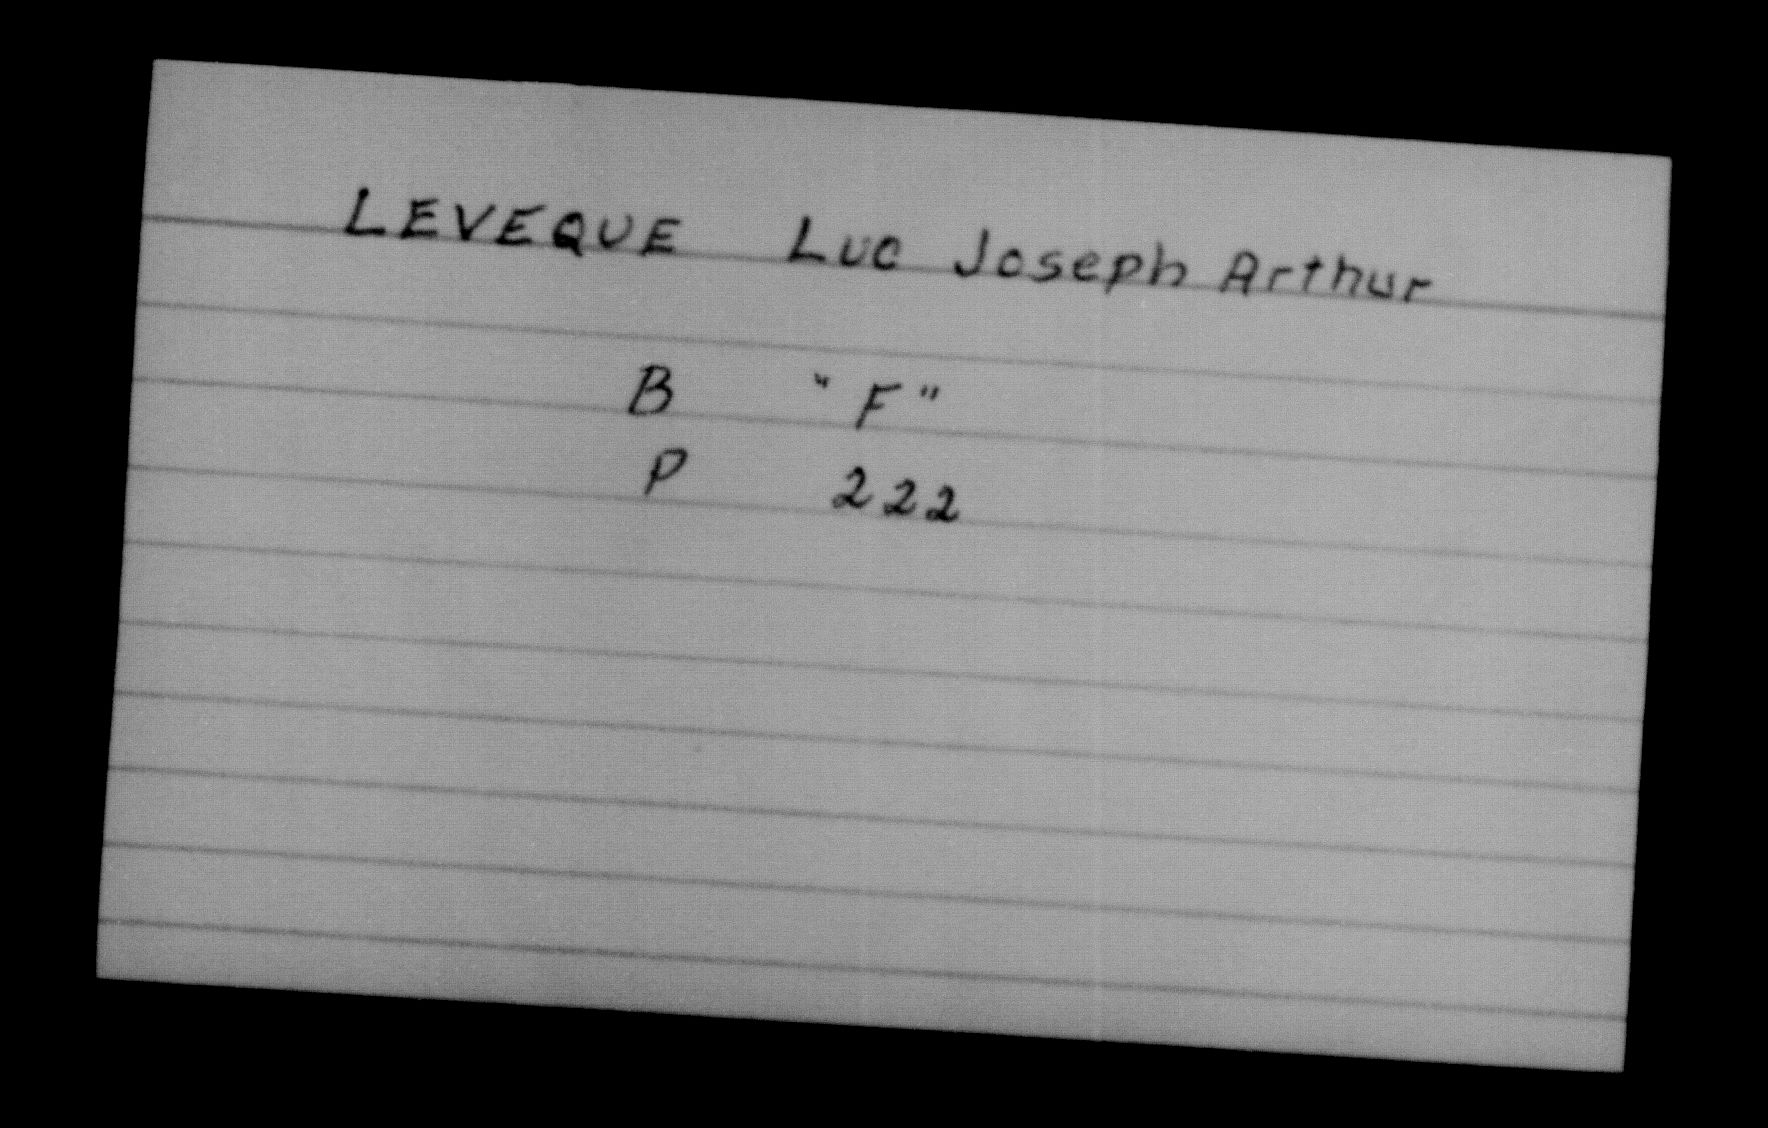 LEVEQUE Luc Joseph Arthur
B "F"
P 222